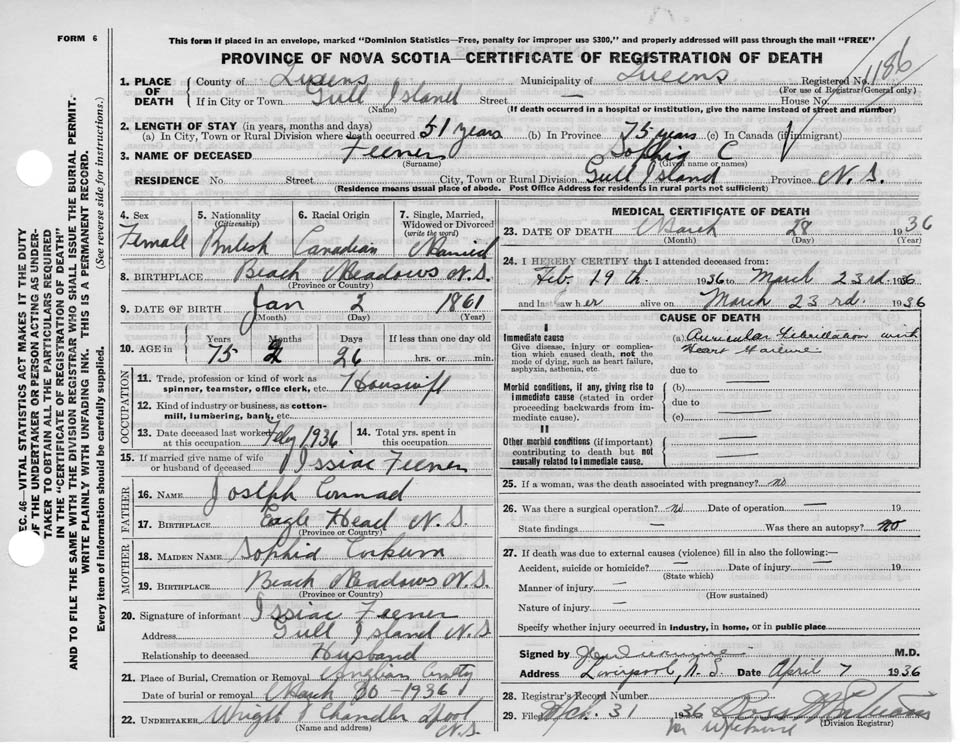 FORM 6
This form if placed in an envelope, marked "Dominion Statistics—Free, penalty for improper use $300," and properly addressed will pass through the mail "FREE"
PROVINCE OF NOVA SCOTIA—CERTIFICATE OF REGISTRATION OF DEATH
1. PLACE OF DEATH County of Queens Municipality of Queens Registered No. 1186
(For use of Registrar General only)
If in City or Town Gull Island Street — House No.
(Name) (If death occurred in a hospital or institution, give the name instead of street and number)
2. LENGTH OF STAY (in years, months and days)
(a) In City, Town or Rural Division where death occurred 51 years (b) In Province 75 years (c) In Canada (if immigrant)
3. NAME OF DECEASED Feener Sophia C
(Surname) (Given name or names)
RESIDENCE No. Street City, Town or Rural Division Gull Island Province N. S.
(Residence means usual place of abode. Post Office Address for residents in rural parts not sufficient)
4. Sex Female
5. Nationality (Citizenship) British
6. Racial Origin Canadian
7. Single, Married, Widowed or Divorced (write the word) Married
8. BIRTHPLACE Beach Meadows N.S.
(Province or Country)
9. DATE OF BIRTH Jan 2 1861
(Month) (Day) (Year)
10. AGE in Years 75 Months 2 Days 26 If less than one day old
hrs. or min.
OCCUPATION
11. Trade, profession or kind of work as spinner, teamster, office clerk, etc. Housewife
12. Kind of industry or business, as cotton-mill, lumbering, bank, etc.
13. Date deceased last worked at this occupation Feby 1936
14. Total yrs. spent in this occupation
15. If married give name of wife or husband of deceased Issiac Feener
FATHER
16. NAME Joseph Conrad
17. BIRTHPLACE Eagle Head N.S.
(Province or Country)
MOTHER
18. MAIDEN NAME Sophia Corkum
19. BIRTHPLACE Beach Meadows N.S.
(Province or Country)
20. Signature of informant Issiac Feener
Address Gull Island N.S.
Relationship to deceased Husband
21. Place of Burial, Cremation or Removal
Date of burial or removal March 30 - 1936
22. UNDERTAKER Wright & Chandler Lpool N.S.
(Name and address)
MEDICAL CERTIFICATE OF DEATH
23. DATE OF DEATH March 28 1936
(Month) (Day) (Year)
24. I HEREBY CERTIFY that I attended deceased from:
Feb. 19th. 1936 to March 23rd. 1936
and last saw her alive on March 23rd. 1936
CAUSE OF DEATH
I
Immediate cause
Give disease, injury or complication which caused death, not the mode of dying, such as heart failure, asphyxia, asthenia, etc.
(a) Auricular Fibrillation with Heart Failure.
due to
Morbid conditions, if any, giving rise to immediate cause (stated in order proceeding backwards from immediate cause).
(b) —
due to —
(c) —
II
Other morbid conditions (if important) contributing to death but not causally related to immediate cause.
25. If a woman, was the death associated with pregnancy? no
26. Was there a surgical operation? no Date of operation — 19
State findings — Was there an autopsy? no
27. If death was due to external causes (violence) fill in also the following:—
Accident, suicide or homicide? — Date of injury — 19
(State which)
Manner of injury —
(How sustained)
Nature of injury —
Specify whether injury occurred in industry, in home, or in public place
Signed by M.D.
Address Liverpool, N.S. Date April 7 1936
28. Registrar's Record Number
29. Filed Mch. 31 1936
(Division Registrar)
SEC. 46—VITAL STATISTICS ACT MAKES IT THE DUTY
OF THE UNDERTAKER OR PERSON ACTING AS UNDER-
TAKER TO OBTAIN ALL THE PARTICULARS REQUIRED
IN THE "CERTIFICATE OF REGISTRATION OF DEATH"
AND TO FILE THE SAME WITH THE DIVISION REGISTRAR WHO SHALL ISSUE THE BURIAL PERMIT.
WRITE PLAINLY WITH UNFADING INK. THIS IS A PERMANENT RECORD.
Every item of information should be carefully supplied. (See reverse side for instructions.)